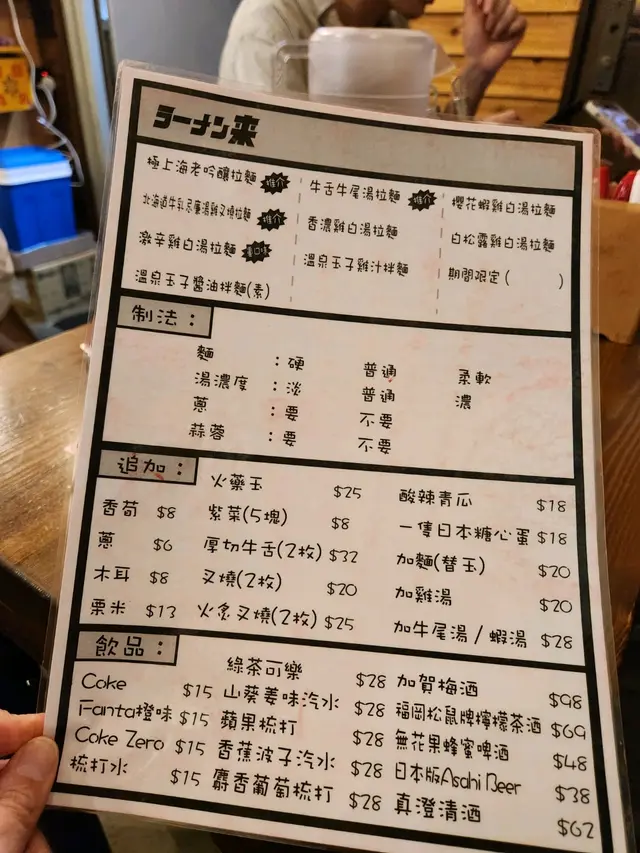 ラーメン来
極上海老吟釀拉麵 推介
北海道牛乳尽膚湯雞叉燒拉麵 推介
激辛雞白湯拉麵 重口味
溫泉玉子醬油拌麵(素)
牛舌牛尾湯拉麵 推介
香濃雞白湯拉麵
溫泉玉子雞汁拌麵
櫻花蝦雞白湯拉麵
白松露雞白湯拉麵
期間限定( )
制法：
麵 ：硬 普通 柔軟
湯濃度 ：淡 普通 濃
蔥 ：要 不要
蒜蓉 ：要 不要
追加：
香筍 $8
蔥 $6
木耳 $8
粟米 $13
火藥玉 $25
紫菜(5塊) $8
厚切牛舌(2枚) $32
叉燒(2枚) $20
火炙叉燒(2枚) $25
酸辣青瓜 $18
一隻日本糖心蛋 $18
加麵(替玉) $20
加雞湯 $20
加牛尾湯/蝦湯 $28
飲品：
Coke $15
Fanta橙味 $15
Coke Zero $15
梳打水 $15
綠茶可樂 $28
山葵姜味汽水 $28
蘋果梳打 $28
香蕉波子汽水 $28
麝香葡萄梳打 $28
加賀梅酒 $98
福岡松鼠牌檸檬茶酒 $69
無花果蜂蜜啤酒 $48
日本版Asahi Beer $38
真澄清酒 $62